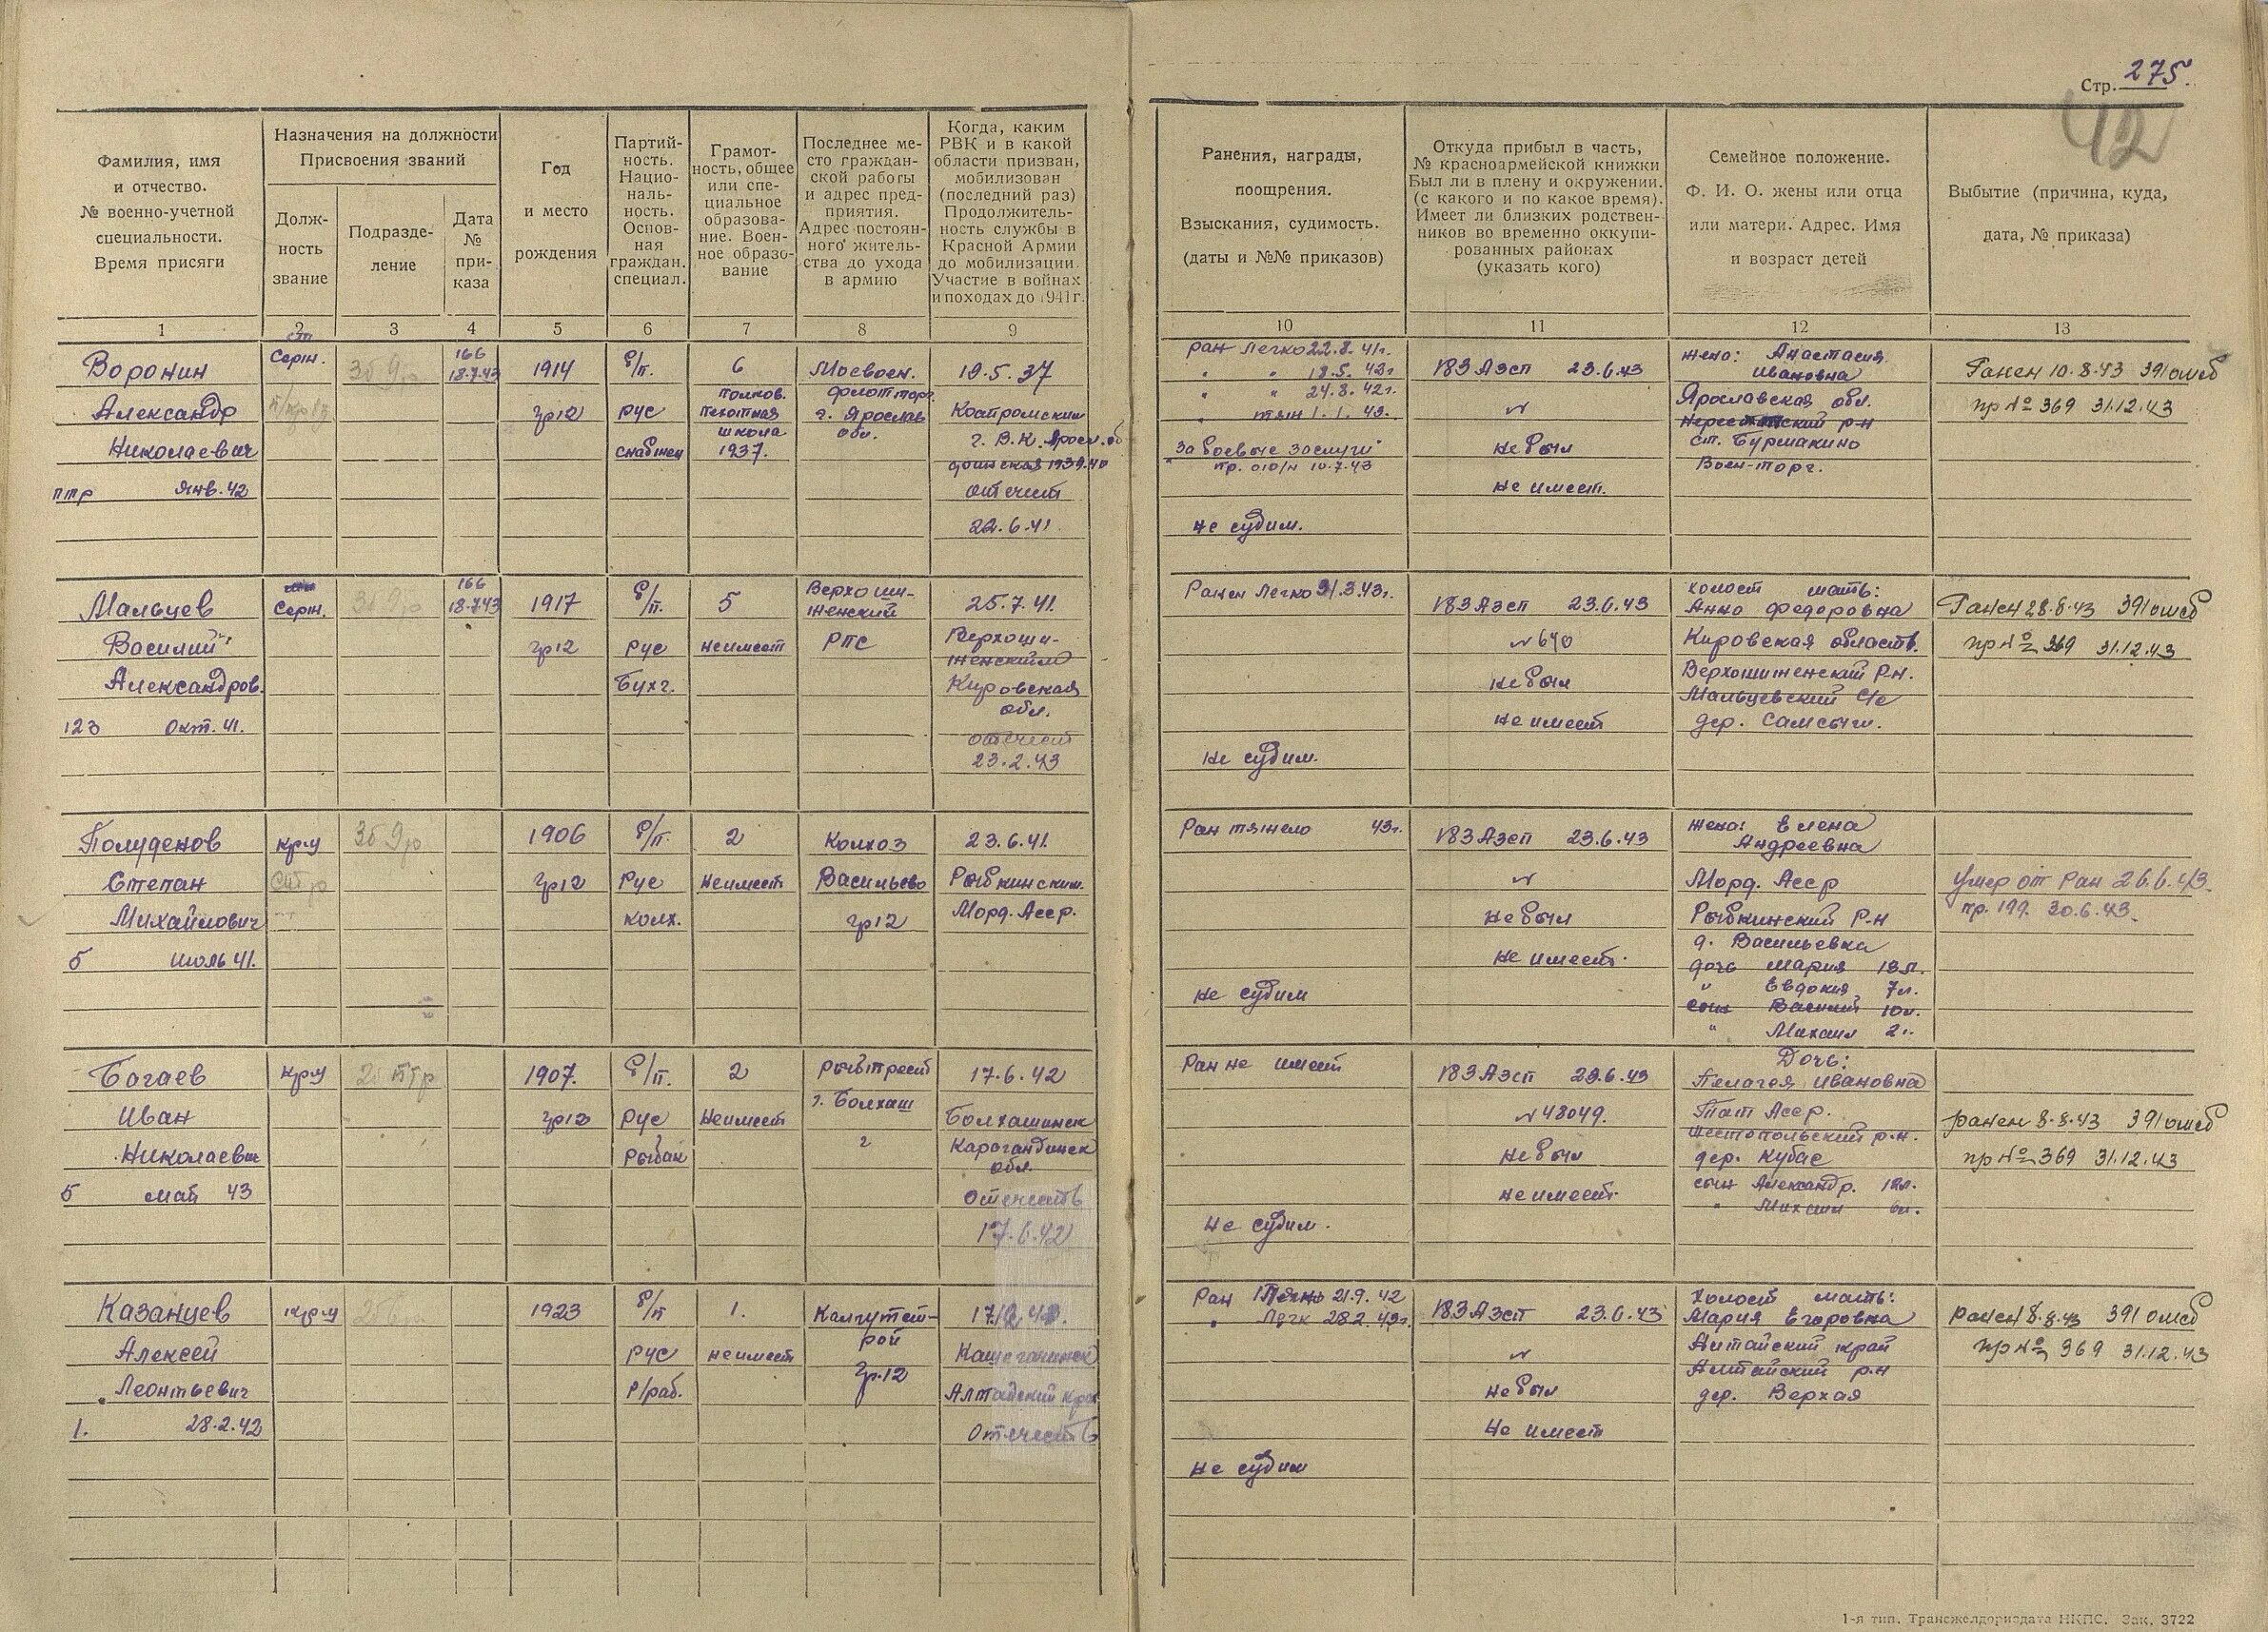 Стр. 275.
42
Фамилия, имя
и отчество.
№ военно-учетной
специальности.
Время присяги
Назначения на должности
Присвоения званий
Долж-
ность
звание
Подразде-
ление
Дата
№
при-
каза
Год
и место
рождения
Партий-
ность.
Нацио-
наль-
ность.
Основ-
ная
граждан.
специал.
Грамот-
ность, общее
или спе-
циальное
образова-
ние. Воен-
ное образо-
вание
Последнее ме-
сто граждан-
ской работы
и адрес пред-
приятия.
Адрес постоян-
ного житель-
ства до ухода
в армию
Когда, каким
РВК и в какой
области призван,
мобилизован
(последний раз)
Продолжитель-
ность службы в
Красной Армии
до мобилизации.
Участие в войнах
и походах до 1941 г.
Ранения, награды,
поощрения.
Взыскания, судимость.
(даты и №№ приказов)
Откуда прибыл в часть,
№ красноармейской книжки
Был ли в плену и окружении.
(с какого и по какое время).
Имеет ли близких родствен-
ников во временно оккупи-
рованных районах
(указать кого)
Семейное положение.
Ф. И. О. жены или отца
или матери. Адрес. Имя
и возраст детей
Выбытие (причина, куда,
дата, № приказа)
1 2 3 4 5 6 7 8 9 10 11 12 13
Воронин
Александр
Николаевич
птр Янв. 42
Серж.
3б 9р
166
18.7.43
1914
гр12
б/п.
рус
снабжен
6
полков.
пехотная
школа
1937.
Мосвоен.
флотторг.
г. Ярослав
обл.
19.5.37
Костромским
г. В.К. Яросл. об
финская 1939.40
отечест
22.6.41
ран легко 22.8.41г.
" " 18.5.42г
" " 24.8.42г.
" тяж 1.1.43.
"За боевые заслуги"
пр. 010/н 10.7.43
не судим.
183 Азсп 23.6.43
№
не был
не имеет.
жена: Анастасия
Ивановна
Ярославская обл.
ский р-н
ст. Бурмакино
Воен-торг.
Ранен 10.8.43 391 омсб
пр № 369 31.12.43
Мальцев
Василий
Александров.
123 Окт. 41.
Серж.
3б 9р
166
18.7.43
1917
гр12
б/п.
рус
Бухг.
5
неимеет
Верхоши-
женский
РПС
25.7.41.
Верхоши-
женским
Кировская
обл.
отечест
23.2.43
Ранен легко 31.3.43г.
не судим.
183 Азсп 23.6.43
№ 640
не был
не имеет
холост мать:
Анна Федоровна
Кировская область.
Верхошиженский р-н.
Мальцевский с/с
дер. Самсычи.
Ранен 28.8.43 391 омсб
пр № 369 31.12.43
Полуденов
Степан
Михайлович
5 июль 41.
кр-ц
3б 9р
1906
гр12
б/п.
рус
колх.
2
неимеет
Колхоз
Васильево
гр12
23.6.41.
Рыбкинским.
Морд. Асср.
Ран тяжело 43г.
не судим
183 Азсп 23.6.43
№
не был
не имеет.
жена: Елена
Андреевна
Морд. Асср
Рыбкинский р-н
д. Васильевка
дочь Мария 18л.
" Евдокия 7л.
сын Василий 10л.
" Михаил 2г.
Умер от ран 26.6.43.
пр. 199. 30.6.43.
Богаев
Иван
Николаевич
5 май 43
кр-ц
2б птр
1907.
гр12
б/п.
рус
рыбак
2
неимеет
рыбтрест
г. Болхаш
17.6.42
Болхашинск
Карагандинск
обл.
отечеств
17.6.42
Ран не имеет
не судим.
183 Азсп 23.6.43
№ 48049.
не был
не имеет.
Дочь:
Пелагея Ивановна
Тат Асср.
р-н.
дер. Кубас
сын Александр. 12л.
" Михаил 6л.
ранен 8.8.43 391 омсб
пр № 369 31.12.43
Казанцев
Алексей
Леонтьевич
1. 28.2.42
кр-ц
1923
б/п
рус
р/раб.
1.
неимеет
рой
гр.12
Алтайский край
отечеств
Ран легко 21.9.42
" Легк 28.2.43г.
не судим
183 Азсп 23.6.43
№
не был
не имеет
холост мать:
Мария Егоровна
Алтайский край
Алтайский р-н
дер. Верхая
ранен 8.8.43 391 омсб
пр № 369 31.12.43
1-я тип. Трансжелдориздата НКПС. Зак. 3722